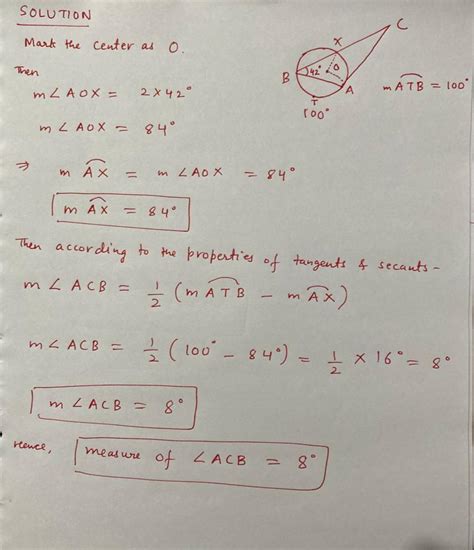 SOLUTION
Mark the center as O.
Then
m∠AOX = 2×42°
m∠AOX = 84°
C
X
O
B
42°
A
T
100°
m A͡T͡B = 100°
⇒ m A͡X = m∠AOX = 84°
m A͡X = 84°
Then according to the properties of tangents & secants-
m∠ACB = 1/2 (m A͡T͡B - m A͡X)
m∠ACB = 1/2 (100° - 84°) = 1/2 × 16° = 8°
m∠ACB = 8°
Hence, measure of ∠ACB = 8°